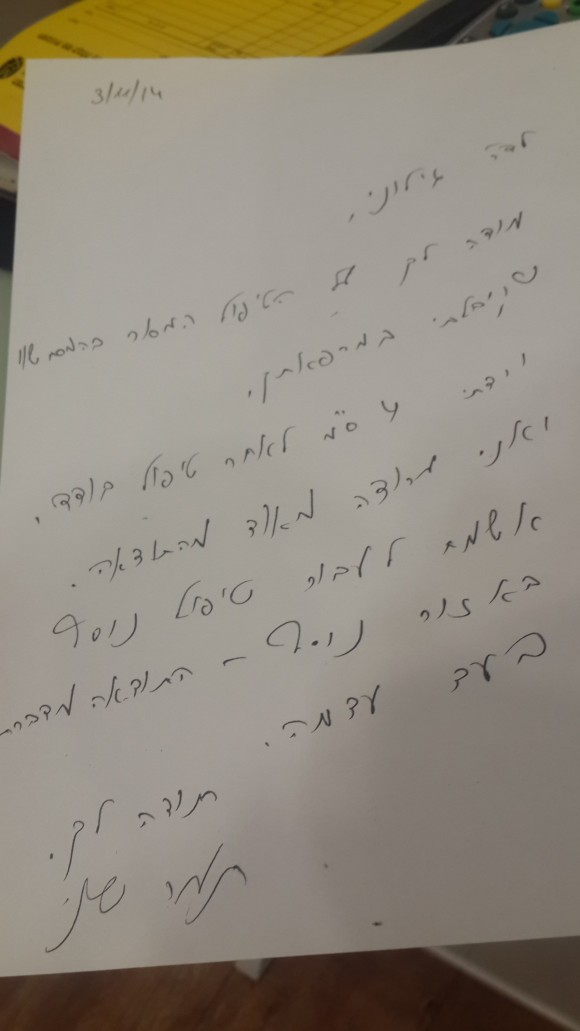 3/11/14
לד״ה גילוני,
מודה לך על הטיפול המסור
שקיבלתי במרפאתך.
ירדתי 4 ס"מ לאחר טיפול בודד,
ואני מרוצה מאוד מהתוצאה.
אשמח לעבור טיפול נוסף
באזור נוסף - התוצאה מדברת
בעד עצמה.
תודה לך.
תמר שני